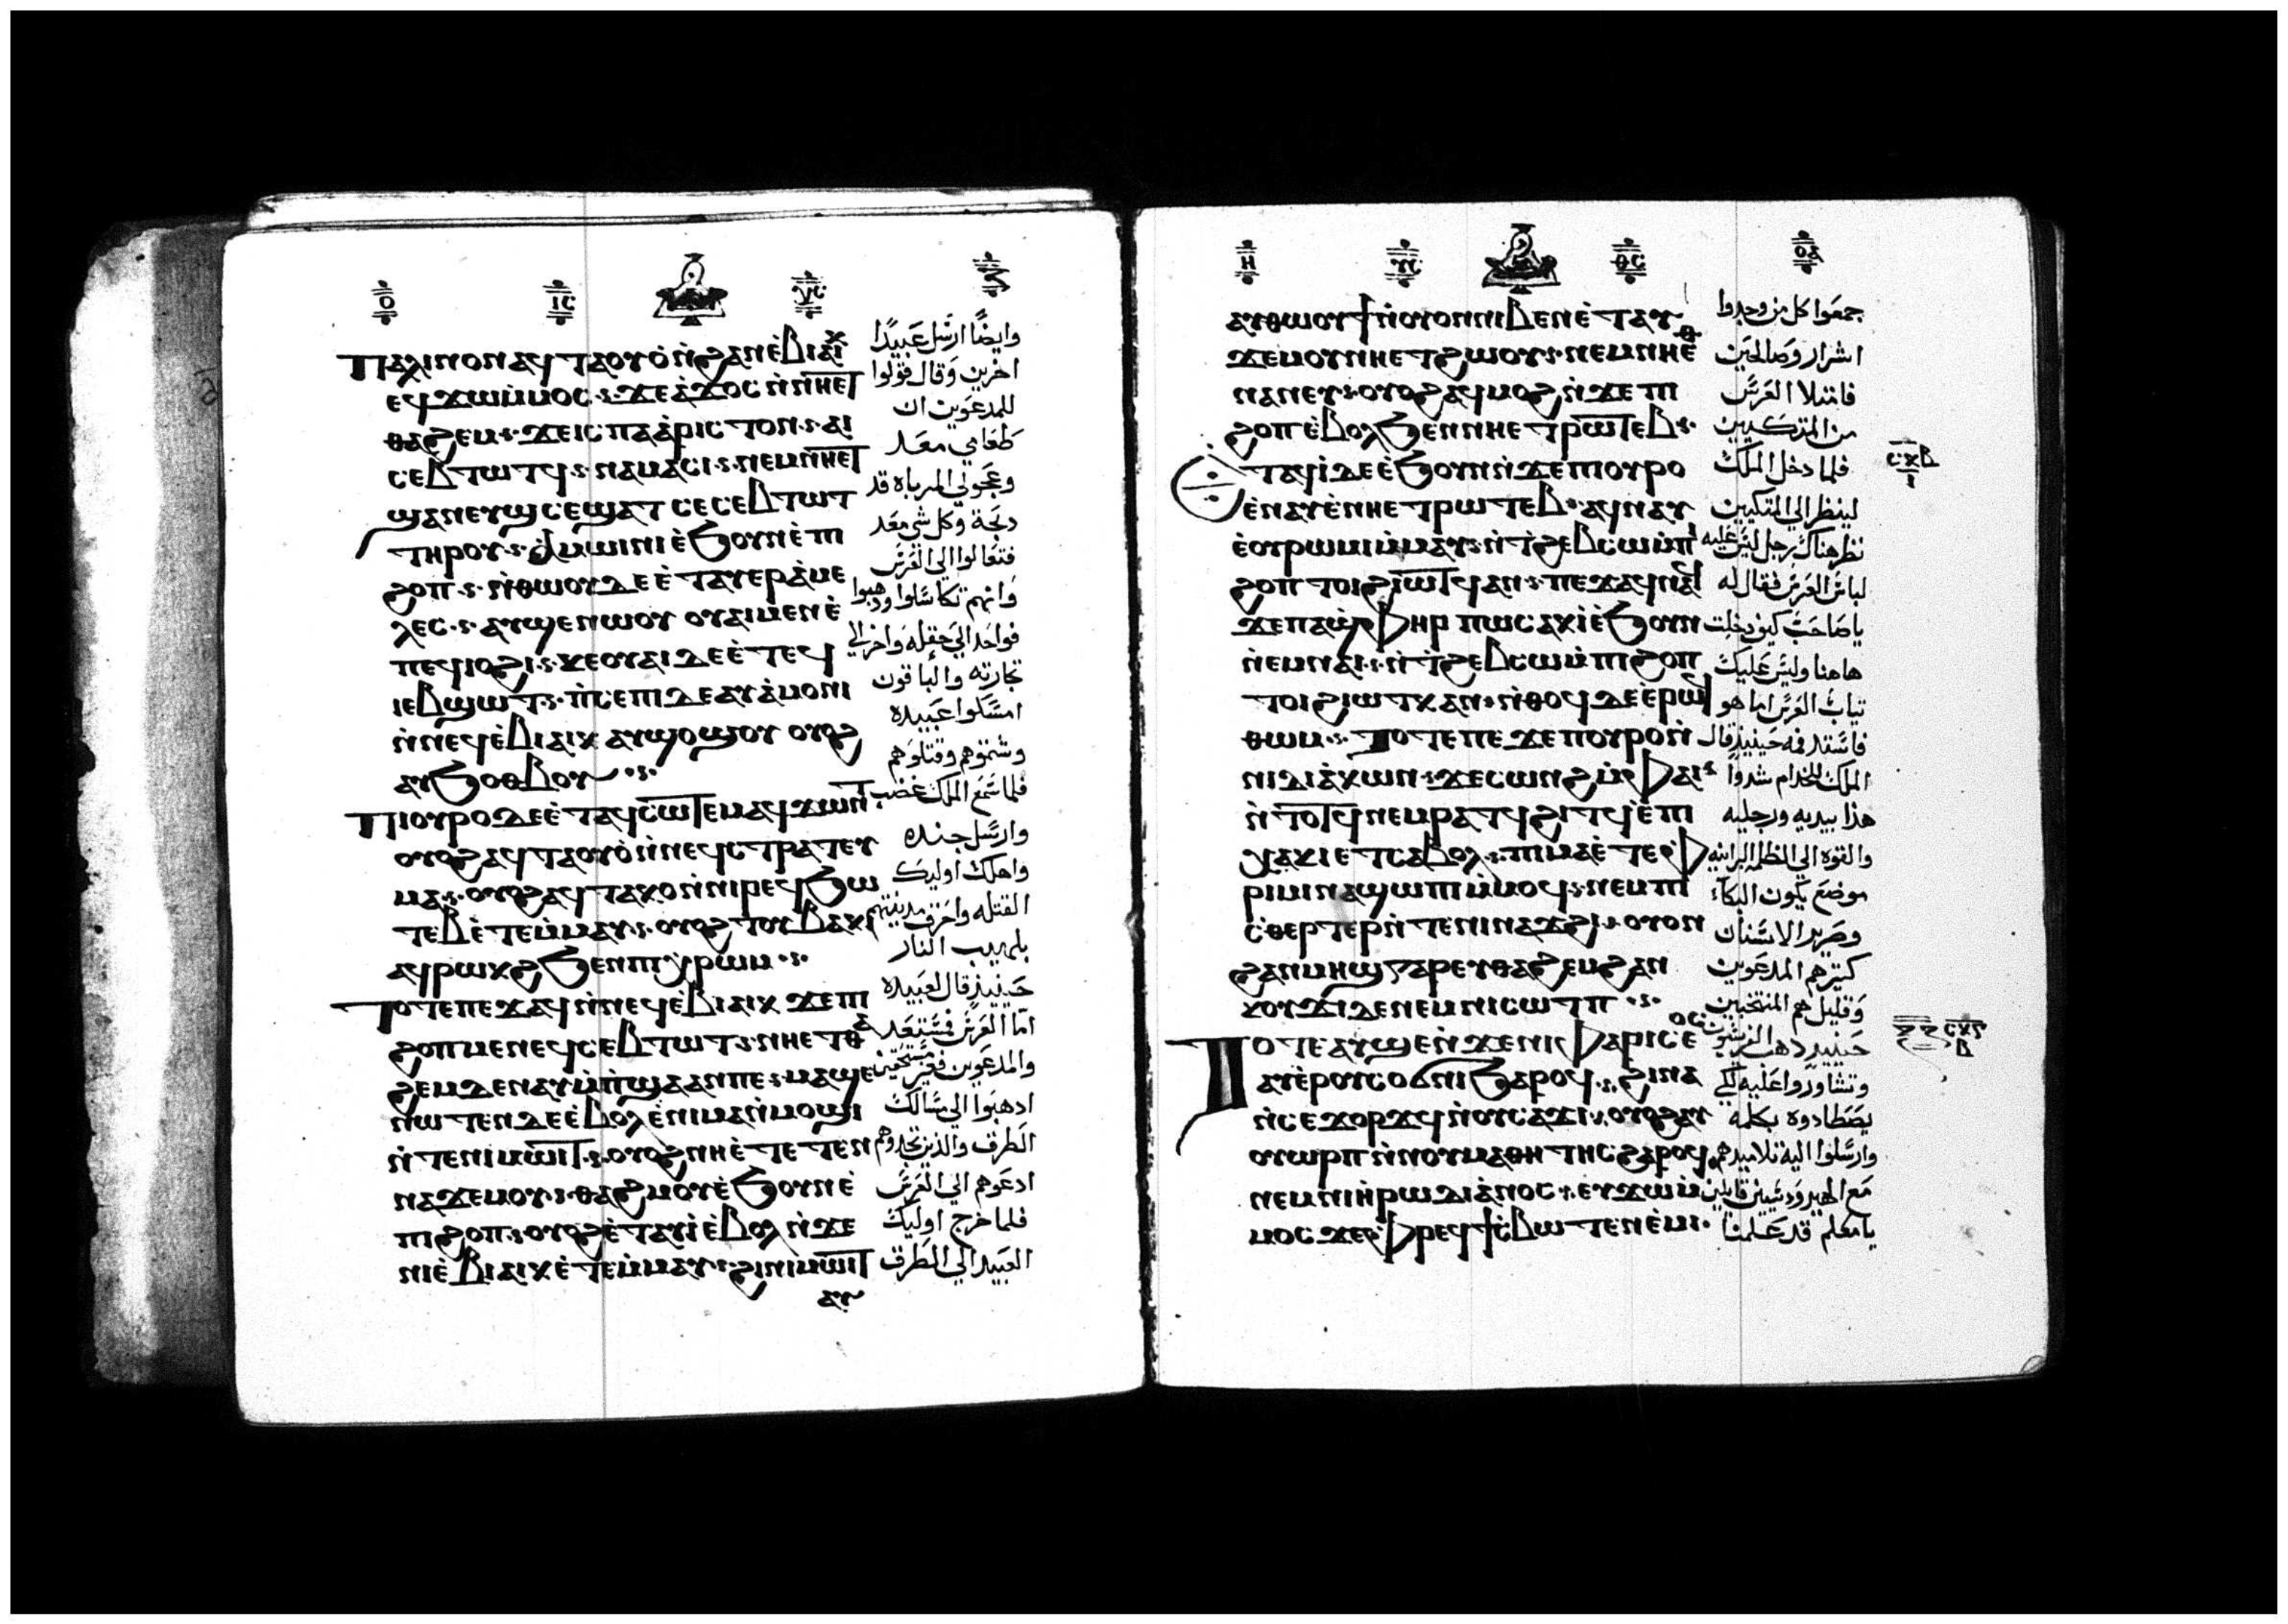 ⲟ ⲓⲥ ⲭⲥ
ⲡⲁⲗⲓⲛ ⲟⲛ ⲁϥⲧⲁⲟⲩⲟ̀ ⲛ̀ϩⲁⲛⲉ̀ⲃⲓⲁⲓⲕ
ⲉϥϫⲱ ⲙ̀ⲙⲟⲥ ϫⲉ ⲁ̀ϫⲟⲥ ⲛ̀ⲛⲏⲉⲧ
ⲑⲁϩⲉⲙ ϫⲉ ⲓⲥ ⲡⲁⲁ̀ⲣⲓⲥⲧⲟⲛ ⲁⲓ
ⲥⲉⲃⲧⲱⲧϥ ⲛⲁⲙⲁⲥⲓ ⲛⲉⲙ ⲛⲏⲉⲧ
ϣⲁⲛⲉⲩϣ ⲥⲉϣⲁⲧ ⲥⲉⲥⲉⲃⲧⲱⲧ
ⲧⲏⲣⲟⲩ ⲁ̀ⲙⲱⲓⲛⲓ ⲉ̀ϧⲟⲩⲛ ⲉ̀ⲡⲓ
ϩⲟⲡ ⲛ̀ⲑⲱⲟⲩ ⲇⲉ ⲉ̀ⲧⲁⲩⲉⲣⲁ̀ⲙⲉ
ⲗⲉⲥ ⲁⲩϣⲉⲛⲱⲟⲩ ⲟⲩⲁⲓ ⲙⲉⲛ ⲉ̀
ⲡⲉϥⲓⲟϩⲓ ⲕⲉⲟⲩⲁⲓ ⲇⲉ ⲉ̀ⲧⲉϥ
ⲓⲉⲃϣⲱⲧ ⲡ̀ⲥⲉⲡⲓ ⲇⲉ ⲁⲩⲁ̀ⲙⲟⲛⲓ
ⲛ̀ⲛⲉϥⲉ̀ⲃⲓⲁⲓⲕ ⲁⲩϣⲟϣⲟⲩ ⲟⲩⲟϩ
ⲁⲩϧⲟⲑⲃⲟⲩ
ⲡⲓⲟⲩⲣⲟ ⲇⲉ ⲉ̀ⲧⲁϥⲥⲱⲧⲉⲙ ⲁϥϫⲱⲛⲧ
ⲟⲩⲟϩ ⲁϥⲧⲁⲟⲩⲟ̀ ⲛ̀ⲛⲉϥⲥⲧⲣⲁⲧⲉⲩ
ⲙⲁ ⲟⲩⲟϩ ⲁϥⲧⲁⲕⲟ ⲛ̀ⲛⲓⲣⲉϥϧⲱ
ⲧⲉⲃ ⲉ̀ⲧⲉⲙ̀ⲙⲁⲩ ⲟⲩⲟϩ ⲧⲟⲩⲃⲁⲕⲓ
ⲁϥⲣⲱⲕϩ ϧⲉⲛ ⲡⲓⲭ̀ⲣⲱⲙ
ⲧⲟⲧⲉ ⲡⲉϫⲁϥ ⲛ̀ⲛⲉϥⲉ̀ⲃⲓⲁⲓⲕ ϫⲉ ⲡⲓ
ϩⲟⲡ ⲙⲉⲛ ⲉϥⲥⲉⲃⲧⲱⲧ ⲛⲏⲉⲧⲑⲁ
ϩⲉⲙ ⲇⲉ ⲛⲁⲩⲙ̀ⲡ̀ϣⲁ ⲁⲛ ⲡⲉ ⲙⲁϣⲉ
ⲛⲱⲧⲉⲛ ⲇⲉ ⲉ̀ⲃⲟⲗ ⲉ̀ⲛⲓⲙⲁⲛ̀ⲙⲟϣⲓ
ⲛ̀ⲧⲉ ⲛⲓⲙⲱⲓⲧ ⲟⲩⲟϩ ⲛⲏⲉ̀ⲧⲉⲧⲉⲛ
ⲛⲁϫⲉⲙⲟⲩ ⲑⲁϩⲙⲟⲩ ⲉ̀ϧⲟⲩⲛ ⲉ̀
ⲡⲓϩⲟⲡ ⲟⲩⲟϩ ⲉ̀ⲧⲁⲩⲓ̀ ⲉ̀ⲃⲟⲗ ⲛ̀ϫⲉ
ⲛⲓⲉ̀ⲃⲓⲁⲓⲕ ⲉ̀ⲧⲉⲙ̀ⲙⲁⲩ ϩⲓ ⲛⲓⲙⲱⲓⲧ
ⲁⲩ
وايضًا ارسَل عَبيدًا
اخرين وَقال قولوا
للمدعَوين ان
طَعَامي معَد
وعجولي المرباه قد
دبحَة وكل شي معَد
فتعَالوا الي العَرسْ
وَانهم تكاسَلوا ودهبوا
فواحَد الي حقله وَاخر الي
تجارته والباقون
امسَكوا عَبيده
وشتموهم وقتلوَهم
فلما سَمَع الملك غضب
وارسَل جنده
واهلك اوليك
القتله واحَرق مدينتهم
بلهيب النار
حَينيذٍ قال لعَبيده
امَا العَرسْ فمسْتعَد
والمدعَوين فغير مسْتحقين
ادهبَوا الي مسَالك
الطرق والذين تجدوهم
ادعَوهم الي العَرسْ
فلما خرج اوليك
العَبيد الي الطَرق
ⲏ ⲩⲥ ⲑⲥ ⲟⲁ
ⲁⲩⲑⲱⲟⲩϯ ⲛ̀ⲟⲩⲟⲛ ⲛⲓⲃⲉⲛ ⲉ̀ⲧⲁⲩ
ϫⲉⲙⲟⲩ ⲛⲏⲉⲧϩⲱⲟⲩ ⲛⲉⲙ ⲛⲏⲉ̀ⲑ
ⲛⲁⲛⲉⲩ ⲟⲩⲟϩ ⲁϥⲙⲟϩ ⲛ̀ϫⲉ ⲡⲓ
ϩⲟⲡ ⲉ̀ⲃⲟⲗ ϧⲉⲛ ⲛⲏⲉⲧⲣⲱⲧⲉⲃ
ⲉⲧⲁϥⲓ̀ ⲇⲉ ⲉ̀ϧⲟⲩⲛ ⲛ̀ϫⲉ ⲡⲓⲟⲩⲣⲟ
ⲉ̀ⲛⲁⲩ ⲉ̀ⲛⲏⲉⲧⲣⲱⲧⲉⲃ ⲁϥⲛⲁⲩ
ⲉ̀ⲟⲩⲣⲱⲙⲓ ⲙ̀ⲙⲁⲩ ⲛ̀ϯϩⲉⲃⲥⲱ ⲙ̀ⲡⲓ
ϩⲟⲡ ⲧⲟⲓ ϩⲓⲱⲧϥ ⲁⲛ ⲡⲉϫⲁϥ ⲛⲁϥ
ϫⲉ ⲡⲁϣ̀ⲫⲏⲣ ⲡⲱⲥ ⲁⲕⲓ̀ ⲉ̀ϧⲟⲩⲛ
ⲛ̀ⲉⲙⲛⲁⲓ ⲛ̀ϯϩⲉⲃⲥⲱ ⲙ̀ⲡⲓϩⲟⲡ
ⲧⲟⲓ ϩⲓⲱⲧⲕ ⲁⲛ ⲛ̀ⲑⲟϥ ⲇⲉ ⲉ̀ⲣⲱϥ
ⲑⲱⲙ ⲧⲟⲧⲉ ⲡⲉϫⲉ ⲡⲟⲩⲣⲟ ⲛ̀
ⲛⲓⲇⲓⲁ̀ⲕⲱⲛ ϫⲉ ⲥⲱⲛϩ ⲙ̀ⲫⲁⲓ
ⲛ̀ⲧⲟⲧϥ ⲛⲉⲙ ⲣⲁⲧϥ ϩⲓⲧϥ ⲉ̀ⲡⲓ
ⲭⲁⲕⲓ ⲉⲧⲥⲁⲃⲟⲗ ⲡⲓⲙⲁ ⲉ̀ⲧⲉ ⲫ̀
ⲣⲓⲙⲓ ⲛⲁϣⲱⲡⲓ ⲙ̀ⲙⲟϥ ⲛⲉⲙ ⲡⲓ
ⲥ̀ⲑⲉⲣⲧⲉⲣ ⲛ̀ⲧⲉ ⲛⲓⲛⲁϫϩⲓ ⲟⲩⲟⲛ
ϩⲁⲛⲙⲏϣ ⲅⲁⲣ ⲉⲩⲑⲁϩⲉⲙ ϩⲁⲛ
ⲕⲟⲩϫⲓ ⲇⲉ ⲛⲉ ⲛⲓⲥⲱⲧⲡ
ⲧⲟⲧⲉ ⲁⲩϣⲉ ⲛ̀ϫⲉ ⲛⲓⲫⲁⲣⲓⲥⲉⲟⲥ
ⲁⲩⲉ̀ⲣⲟⲩⲥⲟϭⲛⲓ ϧⲁⲣⲟϥ ϩⲓⲛⲁ
ⲛ̀ⲥⲉϫⲟⲣϫϥ ⲛ̀ⲟⲩⲥⲁϫⲓ ⲟⲩⲟϩ ⲁⲩ
ⲟⲩⲱⲣⲡ ⲛ̀ⲛⲟⲩⲙⲁⲑⲏⲧⲏⲥ ϩⲁⲣⲟϥ
ⲛⲉⲙ ⲛⲓⲏ̀ⲣⲱⲇⲓⲁ̀ⲛⲟⲥ ⲉⲩϫⲱ ⲙ̀
ⲙⲟⲥ ϫⲉ ⲫ̀ⲣⲉϥϯⲥ̀ⲃⲱ ⲧⲉⲛⲉ̀ⲙⲓ
جمعَوا كل من وجدوا
اشرار وَصَالحَين
فامتلا العَرسْ
من المتكيين
فلما دخل الملك
لينظر الي المتكيين
نظر هناك رجل ليسَ عَليه
لباسَ العَرسْ فقال له
يا صَاحَب كيف دخلت
هاهنا وليسَ عَليك
تياب العَرسْ اما هو
فاسَتد فمه حَينيذٍ قال
الملك للخدام شدوا
هذا بيديه ورجليه
والقوه الي الظلمه البرانيه
موضعَ يكون البكاء
وصَرير الاسَنان
كتيرهم المدعَوين
وَقليل هم المنتخبين
حَينيذ دهب الفريسَيون
وتشاوَروا عَليه لكي
يصَطادوه بكلمه
وارسَلوا اليه تلاميدهم
مَع الهيروَدسَيين قايلين
يا معَلم قد عَلمنا
ⲥⲕⲃ
ⲥⲕⲅ